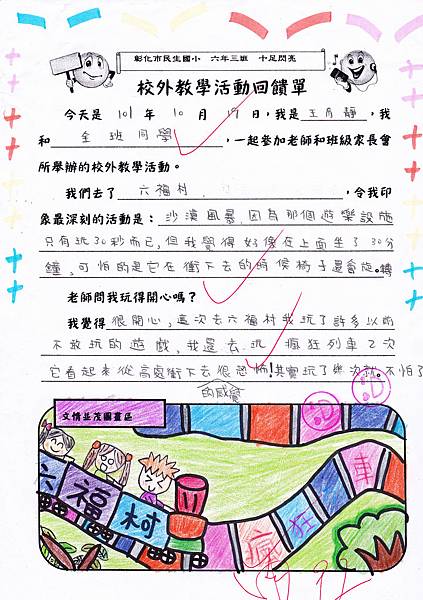 彰化市民生國小 六年三班 十足閃亮
校外教學活動回饋單
今天是101年10月17日,我是王月靜,我
和全班同學,一起參加老師和班級家長會
所舉辦的校外教學活動。
我們去了六福村,令我印
象最深刻的活動是:沙漠風暴,因為那個遊樂設施
只有玩30秒而已,但我覺得好像在上面坐了30分
鐘,可怕的是它在衝下去的時候椅子還會旋轉
老師問我玩得開心嗎?
我覺得很開心,這次去六福村我玩了許多以前
不敢玩的遊戲,我還去玩瘋狂列車2次
它看起來從高處衝下去很恐怖!其實玩了幾次就不怕了
的感覺
文情並茂圖畫區
六福村
瘋狂
車